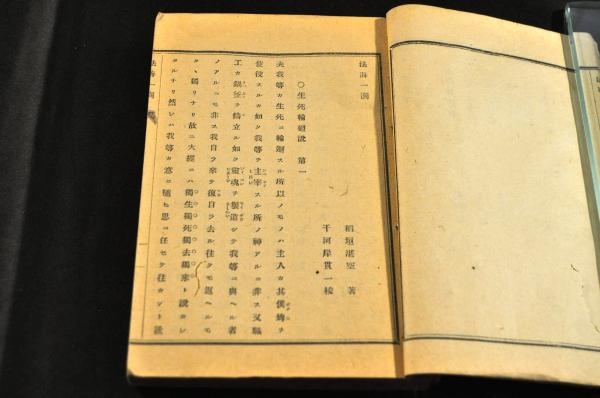 法海一瀾
稻垣湛空 著
千河岸貫一 校
○生死輪廻説 第一
夫我等カ生死ニ輪廻スル所以ノモノハ主人カ其僕婢ヲ
使役スルカ如ク我等ヲ主宰スル所ノ神アルニ非ス又鑄
工カ鍋釜ヲ鑄立ル如ク靈魂ヲ製造シテ我等ニ與ヘル者
ノアルニモ非ス我自ラ來テ復自ラ去ル往クモ還ヘルモ
タヽ獨リナリ故ニ大經ニハ獨生獨死獨去獨來ト説カシ
タルナリ然レハ我等カ意ニ隨ヒ思ニ任セテ往カント欲
法海一